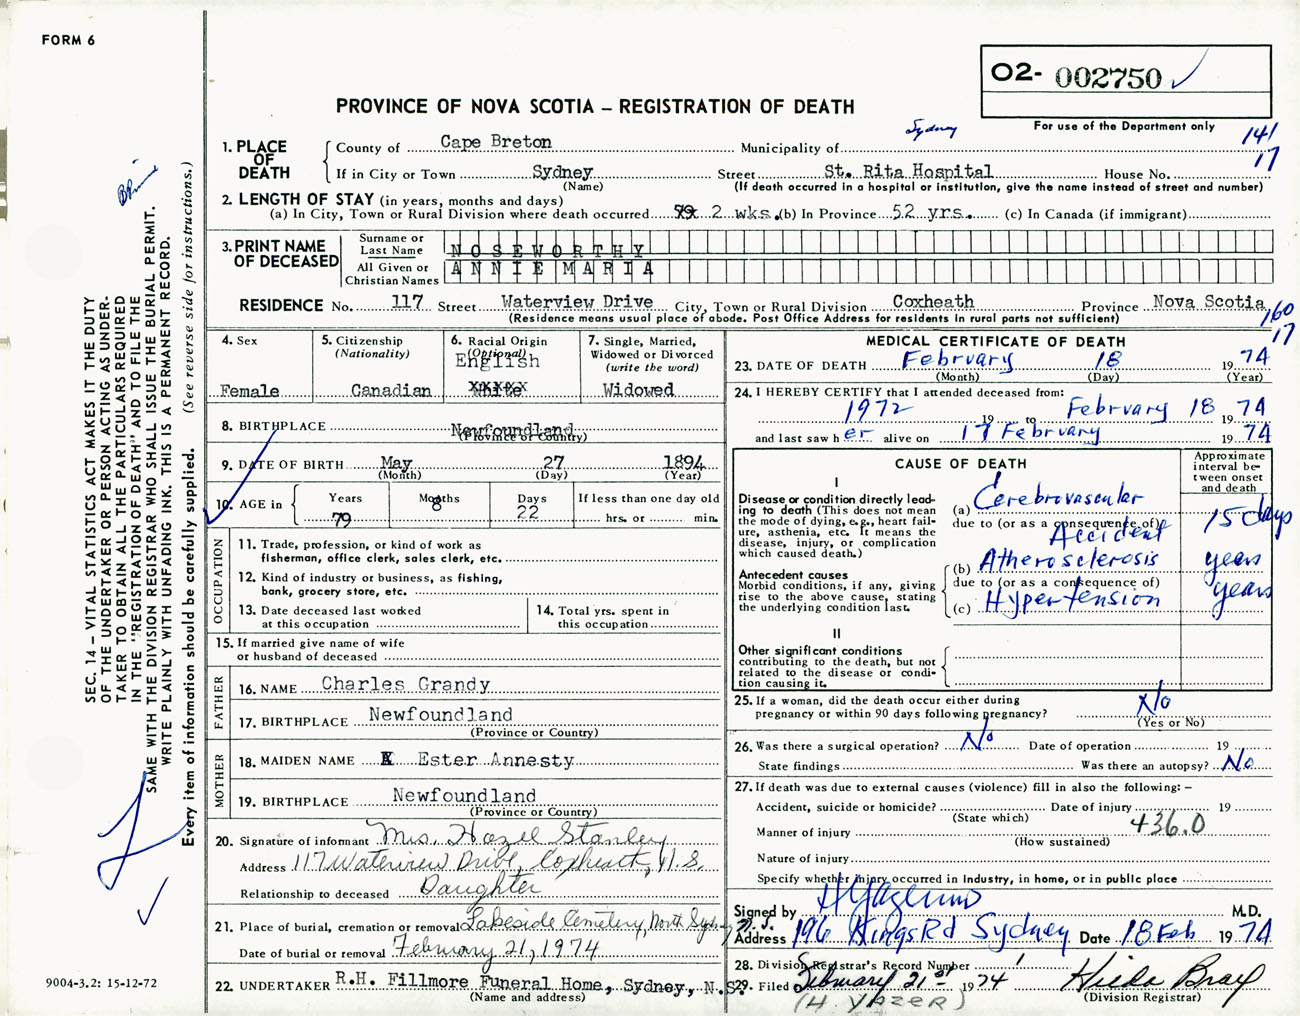 FORM 6
O2- 002750
For use of the Department only
PROVINCE OF NOVA SCOTIA – REGISTRATION OF DEATH
141
17
1. PLACE OF DEATH
County of Cape Breton Municipality of Sydney
If in City or Town Sydney Street St. Rita Hospital House No.
(Name) (If death occurred in a hospital or institution, give the name instead of street and number)
2. LENGTH OF STAY (in years, months and days)
(a) In City, Town or Rural Division where death occurred 2 wks. (b) In Province 52 yrs. (c) In Canada (if immigrant)
3. PRINT NAME OF DECEASED
Surname or Last Name NOSEWORTHY
All Given or Christian Names ANNIE MARIA
RESIDENCE No. 117 Street Waterview Drive City, Town or Rural Division Coxheath Province Nova Scotia
(Residence means usual place of abode. Post Office Address for residents in rural parts not sufficient)
160
17
4. Sex
Female
5. Citizenship
(Nationality)
Canadian
6. Racial Origin
(Optional)
English
White
7. Single, Married,
Widowed or Divorced
(write the word)
Widowed
8. BIRTHPLACE Newfoundland
(Province or Country)
9. DATE OF BIRTH May 27 1894
(Month) (Day) (Year)
10. AGE in
Years Months Days If less than one day old
79 8 22 hrs. or min.
OCCUPATION
11. Trade, profession, or kind of work as
fisherman, office clerk, sales clerk, etc.
12. Kind of industry or business, as fishing,
bank, grocery store, etc.
13. Date deceased last worked
at this occupation
14. Total yrs. spent in
this occupation
15. If married give name of wife
or husband of deceased
FATHER
16. NAME Charles Grandy
17. BIRTHPLACE Newfoundland
(Province or Country)
MOTHER
18. MAIDEN NAME Ester Annesty
19. BIRTHPLACE Newfoundland
(Province or Country)
20. Signature of informant Mrs. Hazel Stanley
Address 117 Waterview Drive, Coxheath, N.S.
Relationship to deceased Daughter
21. Place of burial, cremation or removal Lakeside Cemetery, North Sydney N.S.
Date of burial or removal February 21, 1974
22. UNDERTAKER R.H. Fillmore Funeral Home, Sydney, N.S.
(Name and address)
MEDICAL CERTIFICATE OF DEATH
23. DATE OF DEATH February 18 1974
(Month) (Day) (Year)
24. I HEREBY CERTIFY that I attended deceased from:
1972 19 to February 18 1974
and last saw her alive on 17 February 1974
CAUSE OF DEATH
Approximate interval between onset and death
I
Disease or condition directly lead-
ing to death (This does not mean
the mode of dying, e.g., heart fail-
ure, asthenia, etc. It means the
disease, injury, or complication
which caused death.)
(a) Cerebrovascular
due to (or as a consequence of)
Accident 15 days
Antecedent causes
Morbid conditions, if any, giving
rise to the above cause, stating
the underlying condition last.
(b) Atherosclerosis years
due to (or as a consequence of)
(c) Hypertension years
II
Other significant conditions
contributing to the death, but not
related to the disease or condi-
tion causing it.
25. If a woman, did the death occur either during
pregnancy or within 90 days following pregnancy? No
(Yes or No)
26. Was there a surgical operation? No Date of operation 19
State findings Was there an autopsy? No
27. If death was due to external causes (violence) fill in also the following: –
Accident, suicide or homicide? Date of injury 19
(State which)
436.0
Manner of injury
(How sustained)
Nature of injury
Specify whether injury occurred in industry, in home, or in public place
Signed by M.D.
Address 196 Kings Rd Sydney Date 18 Feb 1974
28. Division Registrar's Record Number
29. Filed February 21st 1974 Hilda Bray
(Division Registrar)
(H. YAZER)
SEC. 14 – VITAL STATISTICS ACT MAKES IT THE DUTY
OF THE UNDERTAKER OR PERSON ACTING AS UNDER-
TAKER TO OBTAIN ALL THE PARTICULARS REQUIRED
IN THE "REGISTRATION OF DEATH" AND TO FILE THE
SAME WITH THE DIVISION REGISTRAR WHO SHALL ISSUE THE BURIAL PERMIT.
WRITE PLAINLY WITH UNFADING INK. THIS IS A PERMANENT RECORD.
Every item of information should be carefully supplied. (See reverse side for instructions.)
9004-3.2: 15-12-72